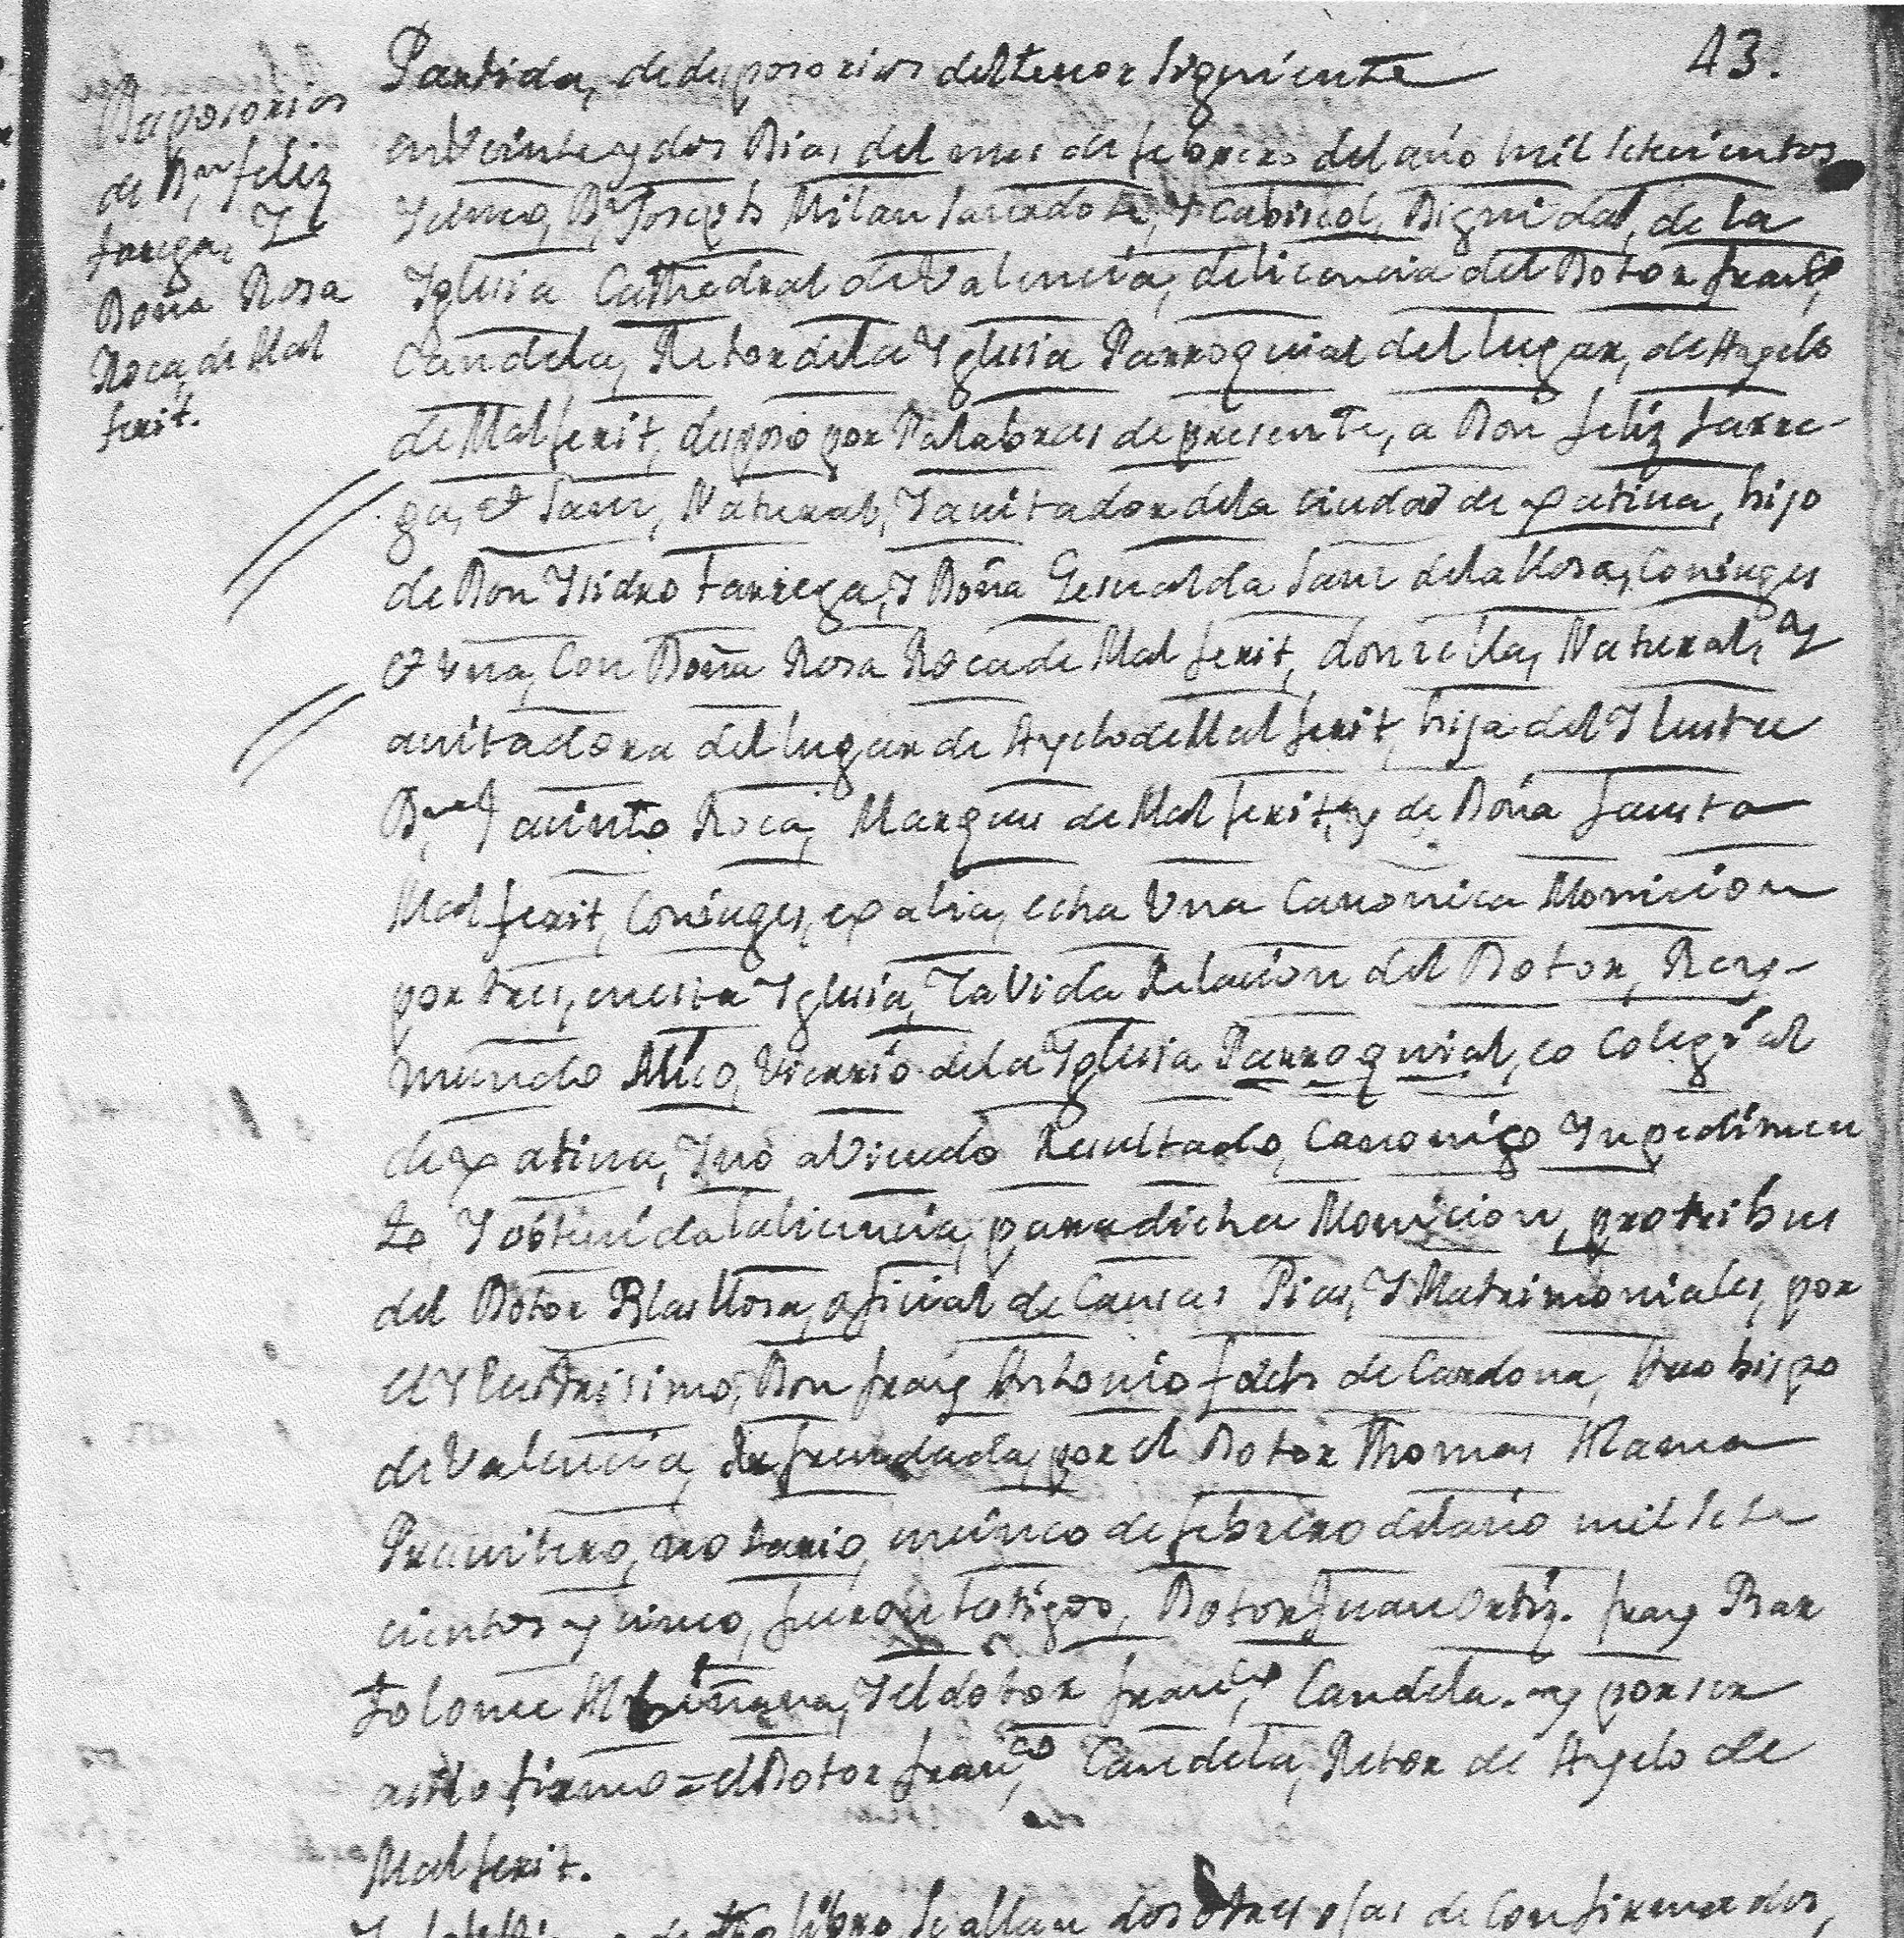 43.
Desposorios
de Dn, feliz
tarega, Y
Doña Rosa
Roca, de Mal
ferit.
Partida, de desposorios del tenor siguiente
en Veinte y dos Dias del mes de febrero del año mil setesientos
Dn, Joseph Milan saserdote, y Cabiscol, Dignidad, de la
Yglesia Cathedral de Valencia, de licencia del Dotor franco,
Candela, Retor dela Yglesia Parroquial del lugar, de Ayelo
de Malferit, desposo por Palabras de presente, a Don feliz tarre-
ga, et Sanz, Natural, Y avitador dela ciudad de xatiua, hijo
de Don Ysidro tarrega, Y Doña Gesualda Sanz dela llosa, Coniuges
et vna, Con Doña Rosa Roca de Malferit, donzella, Natural, y
avitadora del lugar de Ayelo de Malferit, hija del Ylustre
Dn, Jasinto Roca, Marques de Malferit, y de Doña fausta
Malferit, Coniuges, ex alia, echa Vna Canonica Monicion
por tres, enesta Yglesia, Y aVida Relacion del Dotor, Rey-
mundo Mico, Vicario dela Yglesia Parroquial, eo Colegial
de xatiua, Y no aViendo Resultado, Canonigo Ynpedimen
to Y obtenida la licencia, para dicha Monicion, pro tribus
del Dotor Blas llosa, ofisial de Causas Pias, Y Matrimoniales, por
el Ylustrisimo, Don fray Antonio folch de Cardona, Arsobispo
de Valencia, Refrendada, por el Dotor Thomas
Presvitero, notario, en sinco de febrero del año mil sete
cientos y cinco, fueron testigos, Dotor Juan Ortiz. fray Bar
tolome Albiñana, Y el dotor franco, Candela. y por ser
asi lo firmo = el Dotor franco, Candela, Retor de Ayelo de
Malferit.
libro, se allan dos o tres ojas de Confirmados,